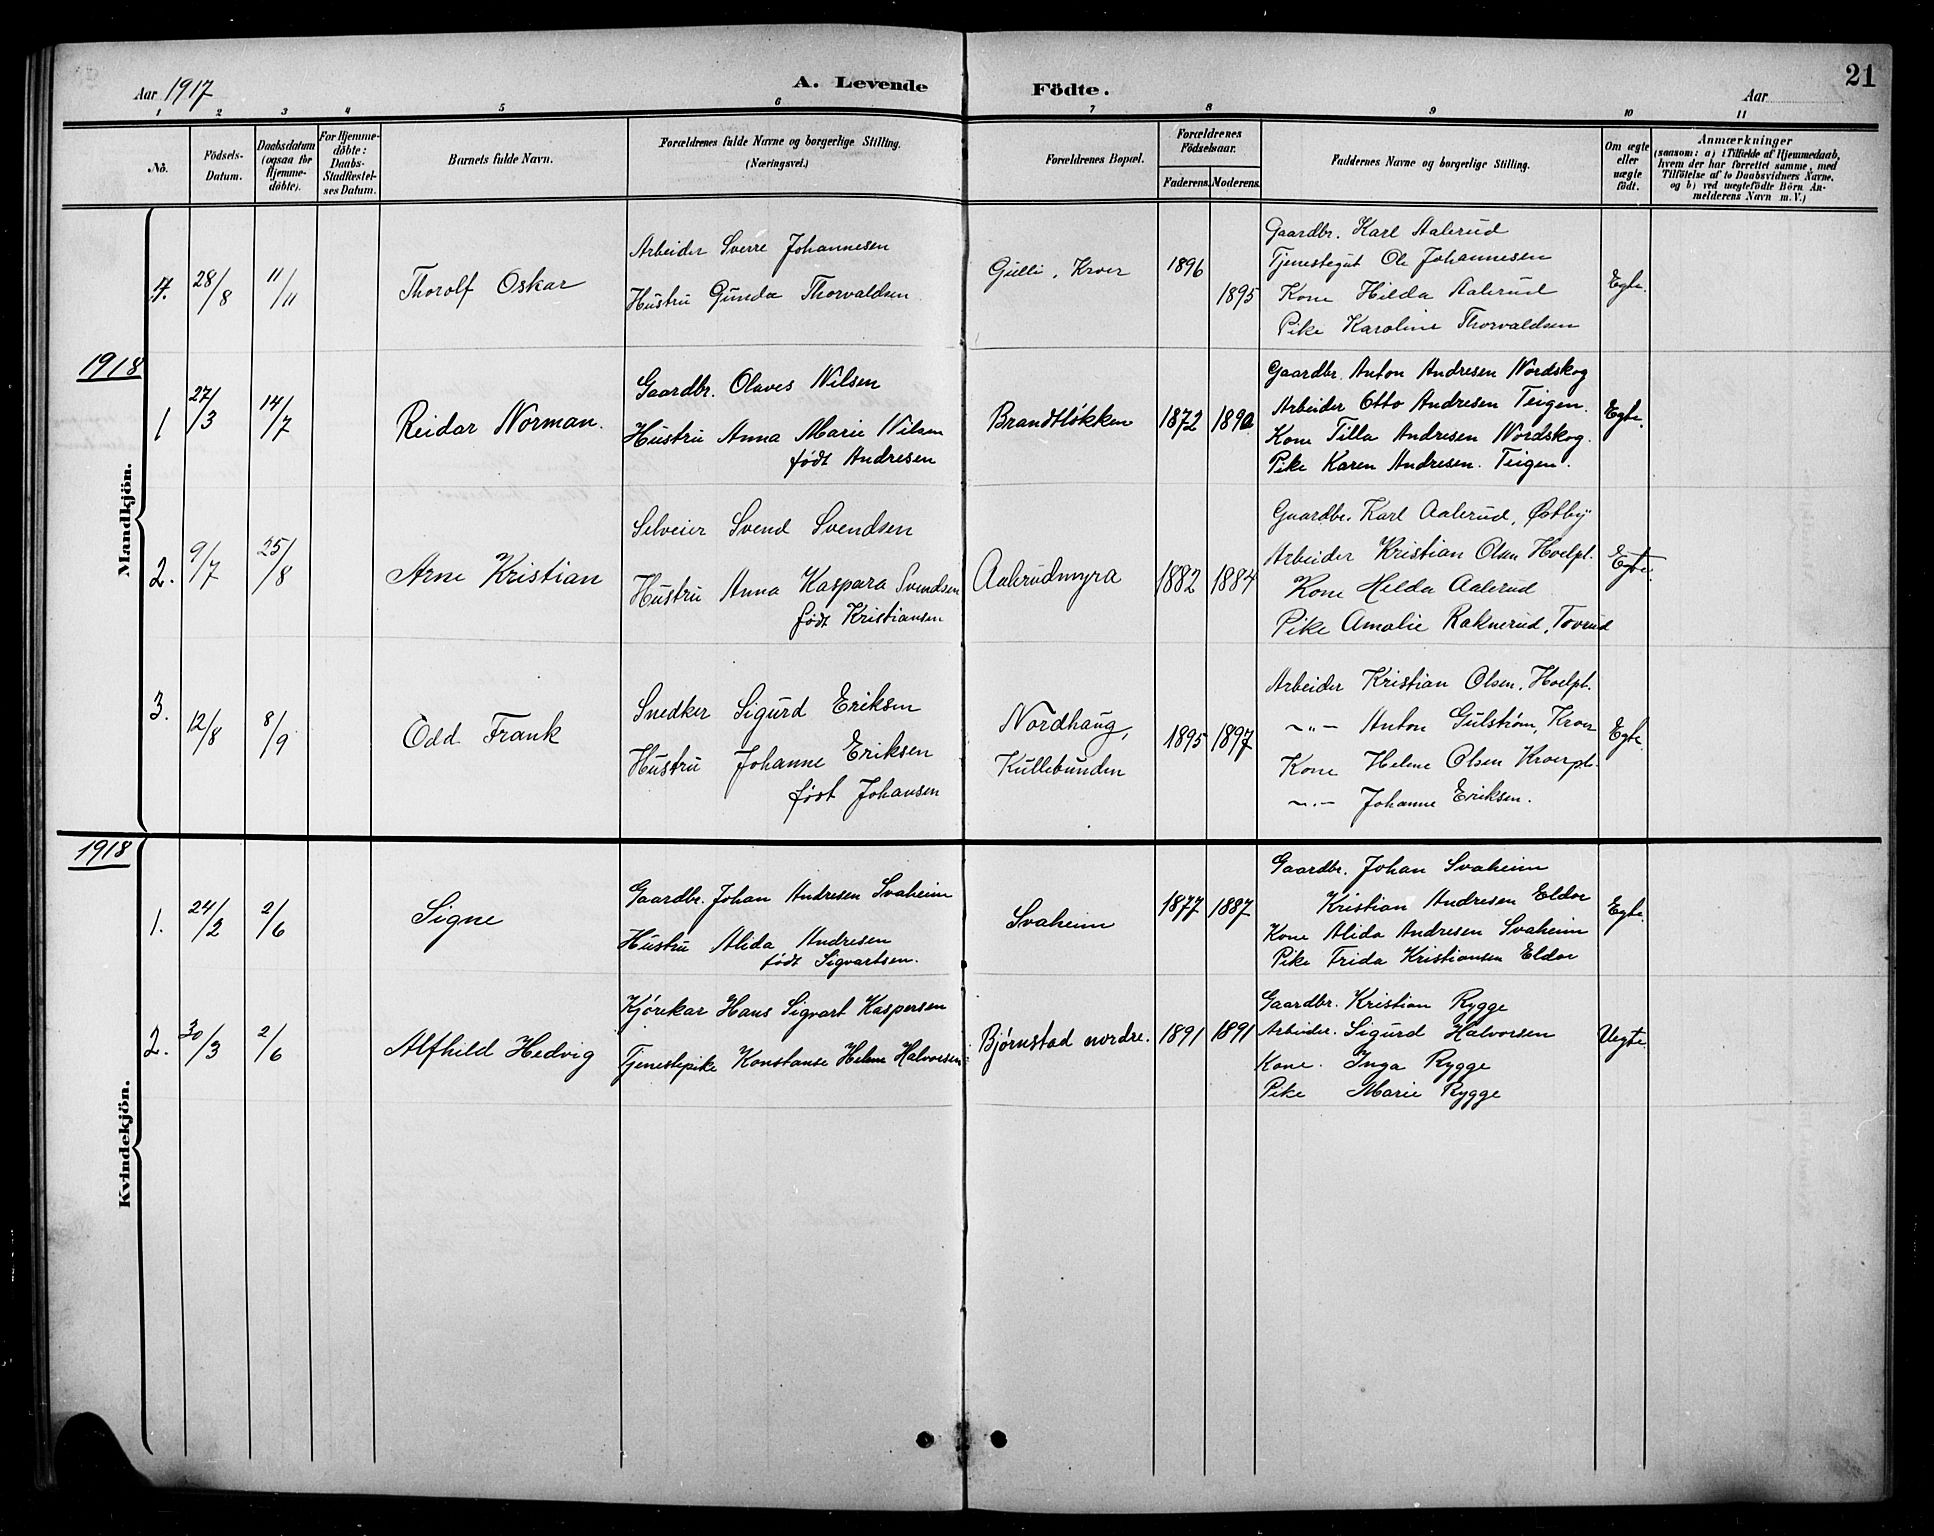 Aar 1917
A. Levende Födte.
Aar
21
1 2 3 4 5 6 7 8 9 10 11
No.
Födsels-Datum.
Daabsdatum (ogsaa for Hjemme-döbte).
For Hjemme-döbte: Daabs-Stadfestel-ses Datum.
Barnets fulde Navn.
Forældrenes fulde Navne og borgerlige Stilling.
(Næringsvei.)
Forældrenes Bopæl.
Forældrenes Födselsaar.
Faderens. Moderens.
Faddernes Navne og borgerlige Stilling.
Om ægte eller uægte födt.
Anmærkninger
(saasom: a) i Tilfælde af Hjemmedaab,
hvem der har forrettet samme, med
Tilföielse af to Daabsvidners Navne.
og b) ved uægtefödte Börn An-
melderens Navn m. V.)
Mandkjön.
4. 28/8 11/11 Thorolf Oskar
Arbeider Sverre Johannesen
Hustru Gunda Thorvaldsen
Gulli, Kroer 1896 1895
Gaardbr. Karl Aalerud
Tjenestegut Ole Johannesen
Kone Hilda Aalerud
Pike Karoline Thorvaldsen
Egte.
1918
1 27/3 14/7 Reidar Norman.
Gaardbr. Olaves Nilsen
Hustru Anna Marie Nilsen
født Andresen
Brandtløkken 1872 1890
Gaardbr. Anton Andresen Nordskog
Arbeider Otto Andresen Teigen.
Kone Tilla Andresen Nordskog.
Pike Karen Andresen. Teigen.
Egte.
2. 9/7 25/8 Arne Kristian
Selveier Svend Svendsen
Hustru Anna Kaspara Svendsen
født Kristiansen
Aalerudmyra 1882 1884
Gaardbr. Karl Aalerud, Østby
Arbeider Kristian Olsen Hoelpl.
Kone Hilda Aalerud
Pike Amalie Raknerud, Toverud
Egte.
3. 12/8 8/9 Odd Frank
Snedker Sigurd Eriksen
Hustru Johanne Eriksen
født Johansen
Nordhaug,
Kullebunden
1895 1897
Arbeider Kristian Olsen, Hoelpl.
~"~ Anton Gulstrøm, Kroer
Kone Helene Olsen Kroerpl.
~"~ Johanne Eriksen.
Egte.
1918
Kvindekjön.
1. 24/2 2/6 Signe
Gaardbr. Johan Andresen Svaheim
Hustru Alida Andresen
født Sigvartsen.
Svaheim 1877 1887
Gaardbr. Johan Svaheim
Kristian Andresen Eldor
Kone Alida Andresen Svaheim
Pike Frida Kristiansen Eldor
Egte.
2. 30/3 2/6 Alfhild Hedvig
Kjørekar Hans Sigvart Kaspersen
Tjenestepike Konstanse Helene Halvorsen
Bjørnstad nordre. 1891 1891
Gaardbr. Kristian Rygge
Arbeider. Sigurd Halvorsen
Kone. Inga Rygge
Pike Marie Rygge
Uegte.